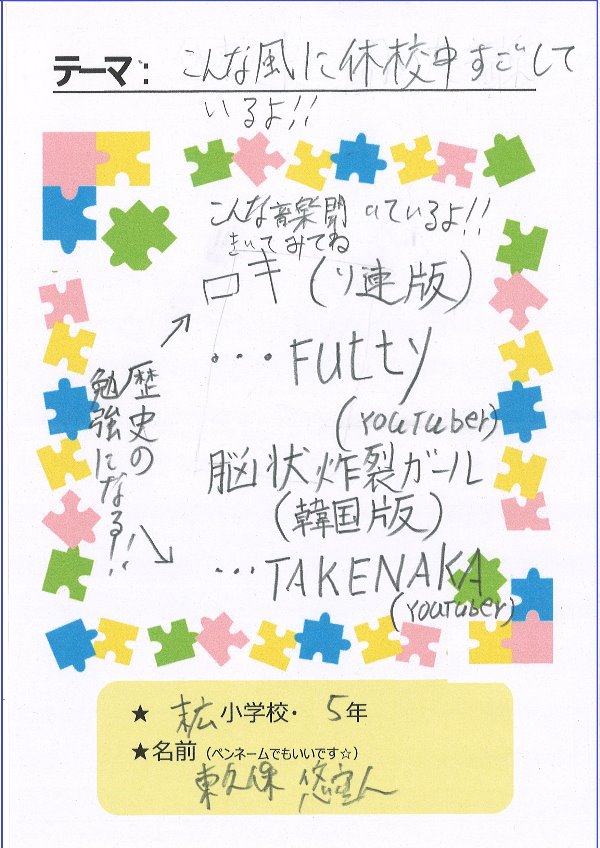 テーマ： こんな風に休校中すごして
いるよ!!
こんな音楽聞いているよ!!
きいてみてね
ロキ(ソ連版)
・・・Futty
(YouTuber)
脳状炸裂ガール
(韓国版)
・・・TAKENAKA
(YouTuber)
歴史の
勉強になる!!
★ 小学校・ 5年
★名前（ペンネームでもいいです☆）
東久保 悠